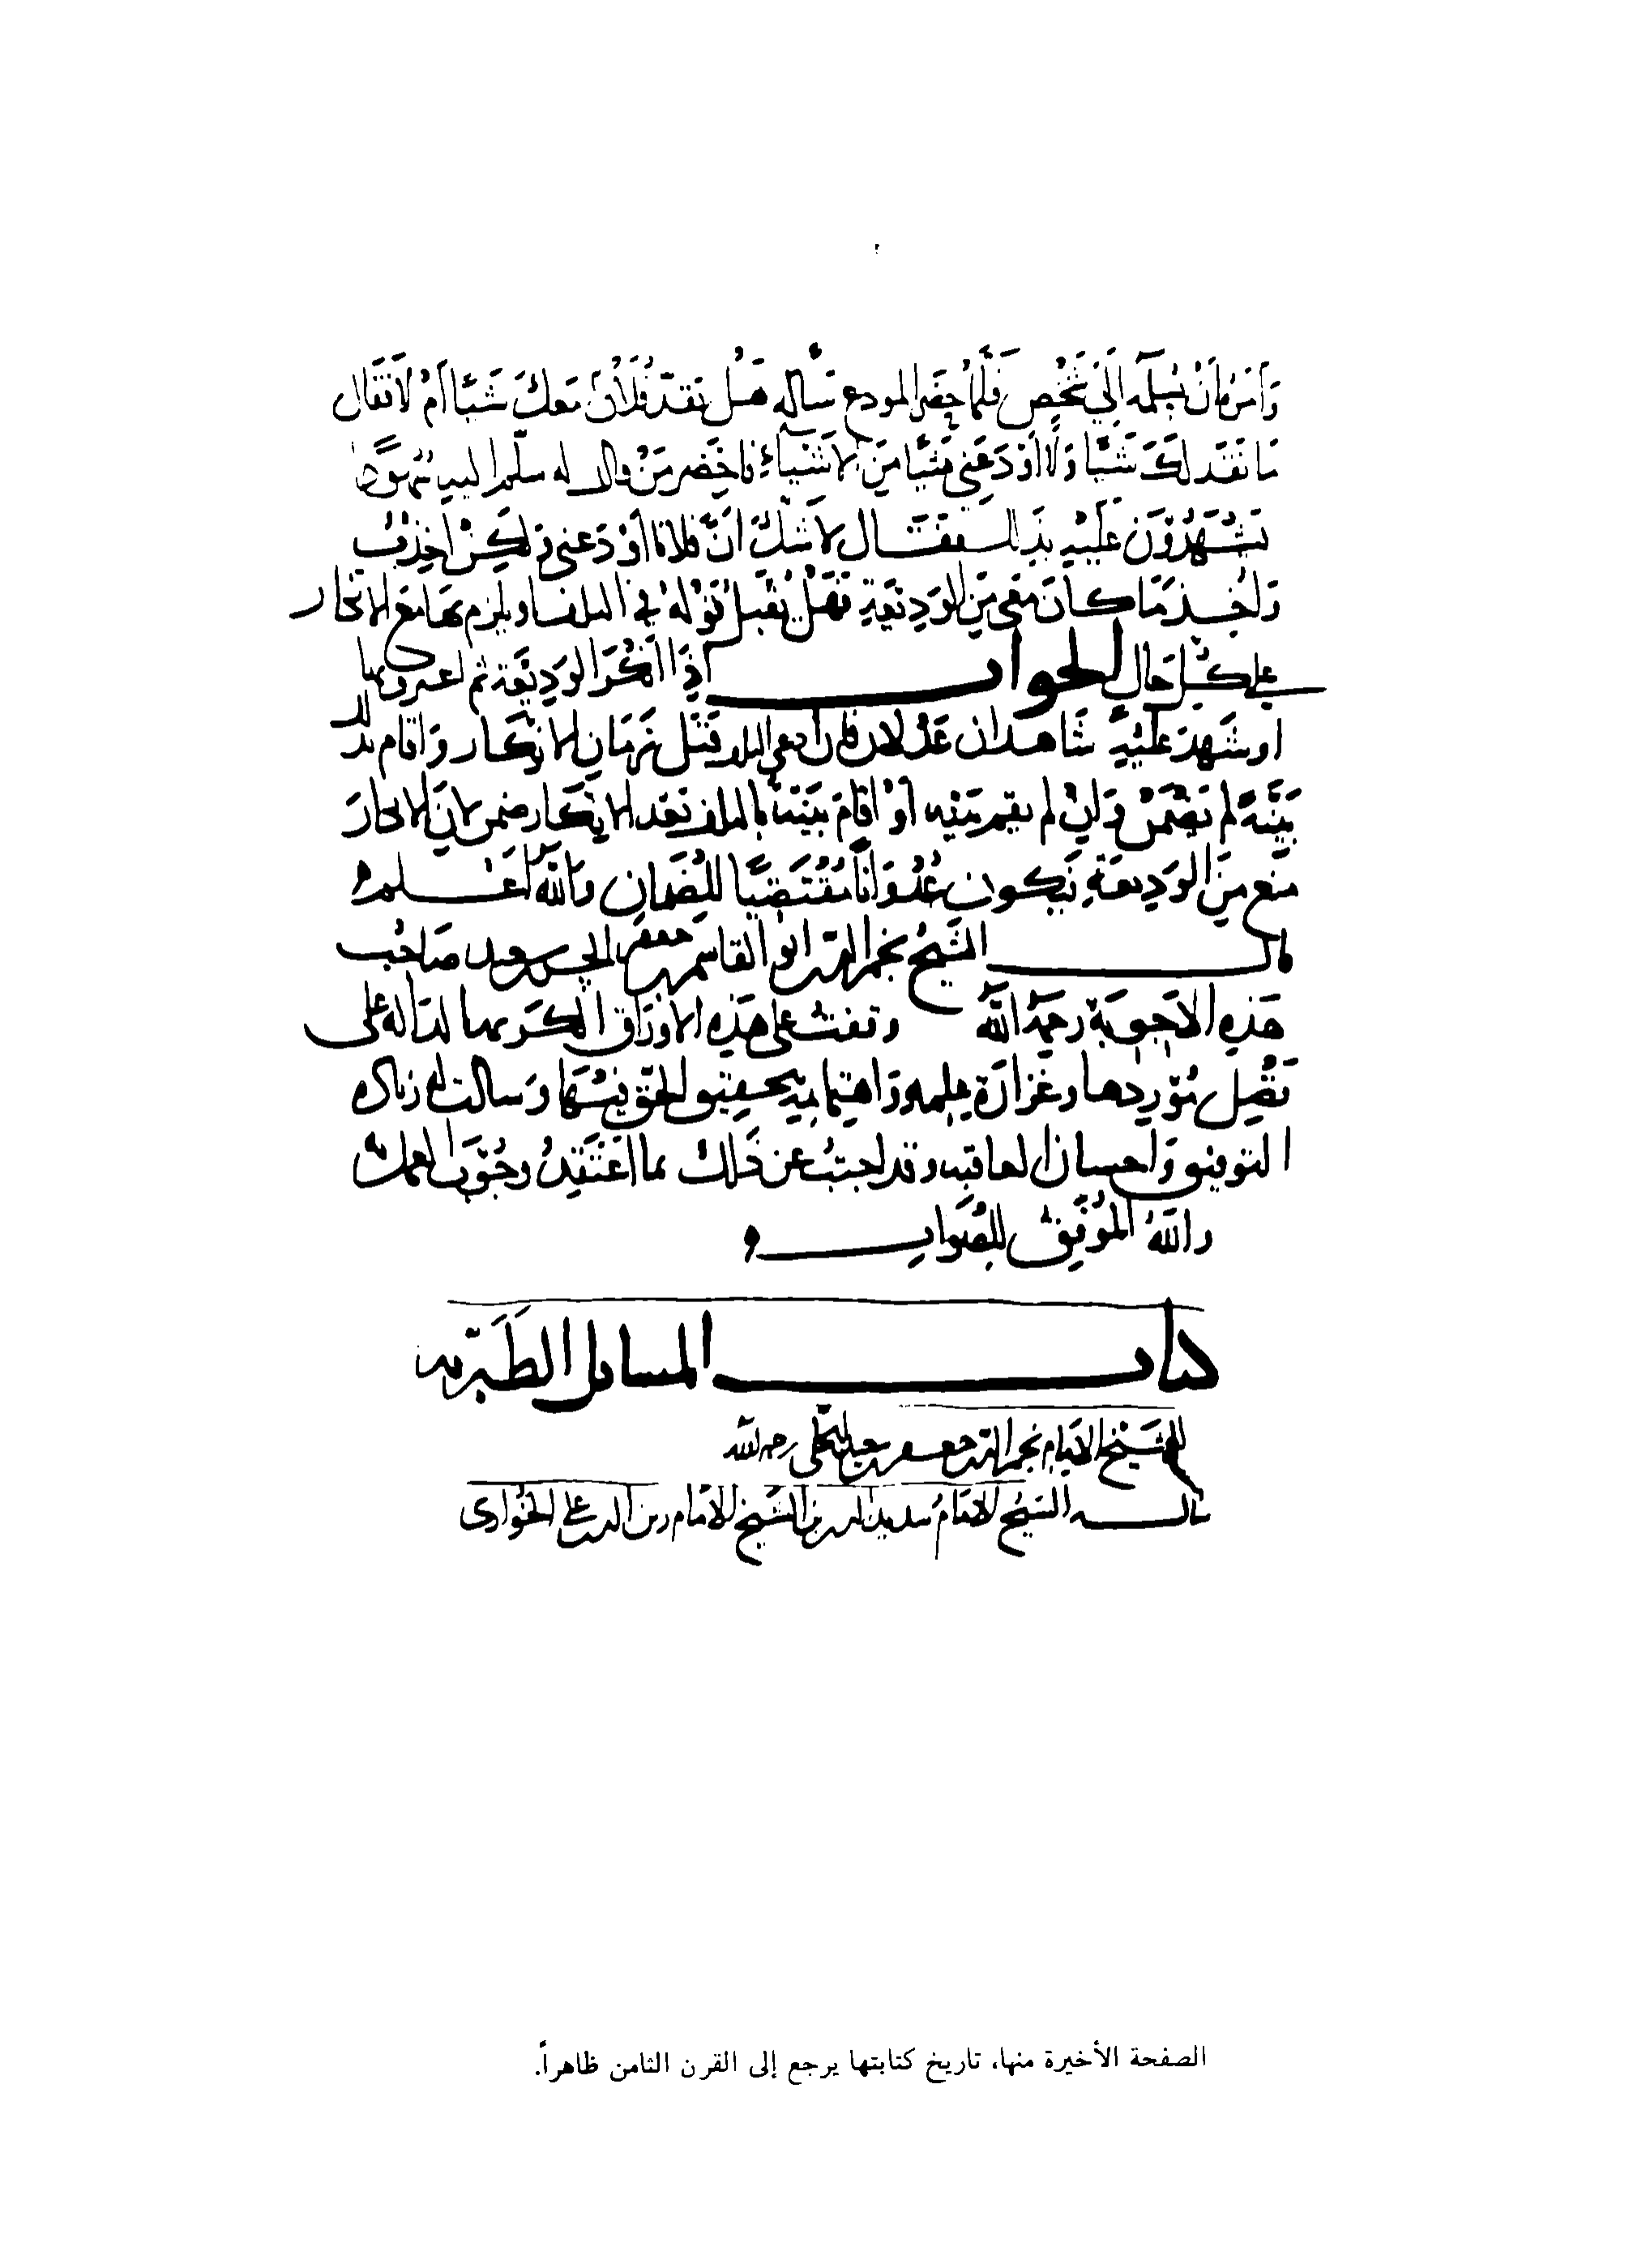 وَأمَرَهُ أنْ يُسَلّمه إلَى شَخْصٍ فَلَمَّا حضَر المودع سَأله هَلْ نفَدَ فُلانٌ مَعكَ شَيْئاً أمْ لاَ فَقَال
مَا نفَد لَكَ شَيْئًا وَلَا أوْدَعَنِي شَيْئًا مِنَ الأشْيَاءِ فاحْضِر مَنْ قال له سلّم إليه
تَشْهَدُون عَلَيْهِ بذَلك فقَال لا شكَّ أنَّ فلانا أوْدَعني ولكِنْ أخِذْتُ
وَأخِذ مَا كانَ مَعِي مِنَ الوَدِيْعَةِ فَهَلْ يُقْبَلُ قَوْلُهُ في التلف او يلزم بها مَعَ الانكار
على كُلِّ حَالٍ الجواب إذَا أنْكَرَ الوَدِيْعَة ثم اعترف بها
او شَهِدَ عَلَيْهِ شَاهدان عَدْلان فان ادعى التلف قَبْلَ زَمَانِ الانْكَار وَاقام بذلك
بَيِّنَةً لم يَضْمَنْ وَانْ لم يقم بَيّنه أوْ أقامَ بَيّنَة بالتلف بَعْد الانكَار ضمن لانَّ الانكارَ
مَنع مِنَ الوَدِيعَةِ فَيَكون عُدْوَانًا مُقْتَضِيًا للضَمان وَاللهُ أعْلم
قال الشَيْخُ نجم الدين ابو القاسم جعفر بن سعيد صَاحبُ
هَذِهِ الأجْوِبَة رَحِمَهُ اللهُ وَقفتُ على هَذِهِ الأوْرَاق الكَريمة الدَالة على
فَضْلِ مُوْرِدها وغَزارَة عِلمِه وَاهتمَامِه بتحقيق الحَقّ وَسألت له زيادة
التوفيق وَإحسان العاقبه وقد أجبتُ عن ذَلك بما أعْتَقِدُ وجُوْبَ العمل به
واللهُ المُوَفِّقُ للصَوابِ
كتاب المسائل الطَبَريه
للشَيْخ الإمَام نجم الدين جعفر بن سعيد الحلّي رحمه الله
سأله الشَيْخُ الإمَامُ سديد الدين بن الشَيْخ الامَام زين الدين علي الخُوَارى
الصفحة الأخيرة منها، تاريخ كتابتها يرجع إلى القرن الثامن ظاهراً.